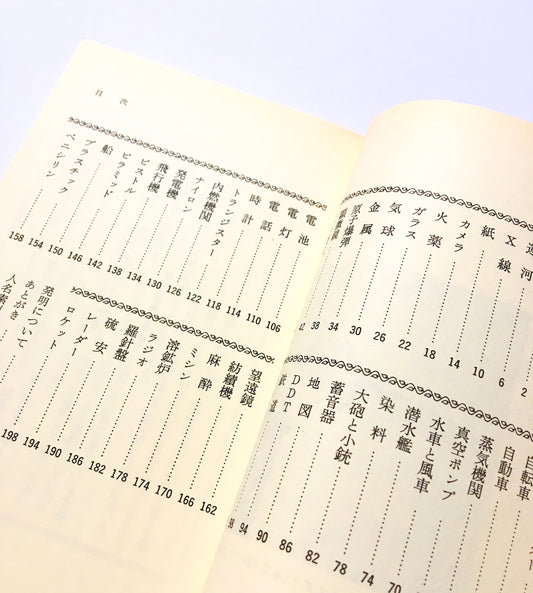 目次
河 2
X線 6
紙 10
カメラ 14
火薬 18
ガラス 22
気球 26
金属 30
原子爆弾 34
38
自転車
自動車
蒸気機関
真空ポンプ
水車と風車 70
潜水艦 74
染料 78
大砲と小銃 82
蓄音器 86
地図 90
DDT 94
道
電池 106
電灯 110
電話 114
時計 118
トランジスター 122
内燃機関 126
ナイロン 130
発電機 134
飛行機 138
ピストル 142
ピラミッド 146
船 150
プラスチック 154
ペニシリン 158
望遠鏡 162
紡績機 166
麻酔 170
ミシン 174
溶鉱炉 178
ラジオ 182
羅針盤 186
硫安 190
レーダー 194
ロケット 198
発明について
あとがき
人名